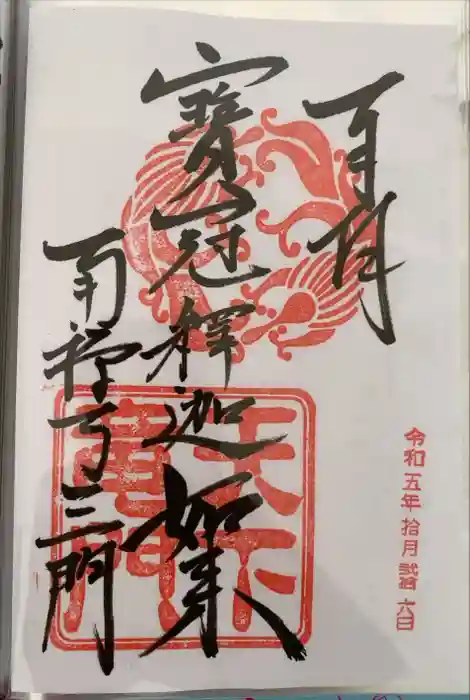 寶冠釋迦如来
南禅寺三門
天下
竜門
令和五年拾月弐拾六日